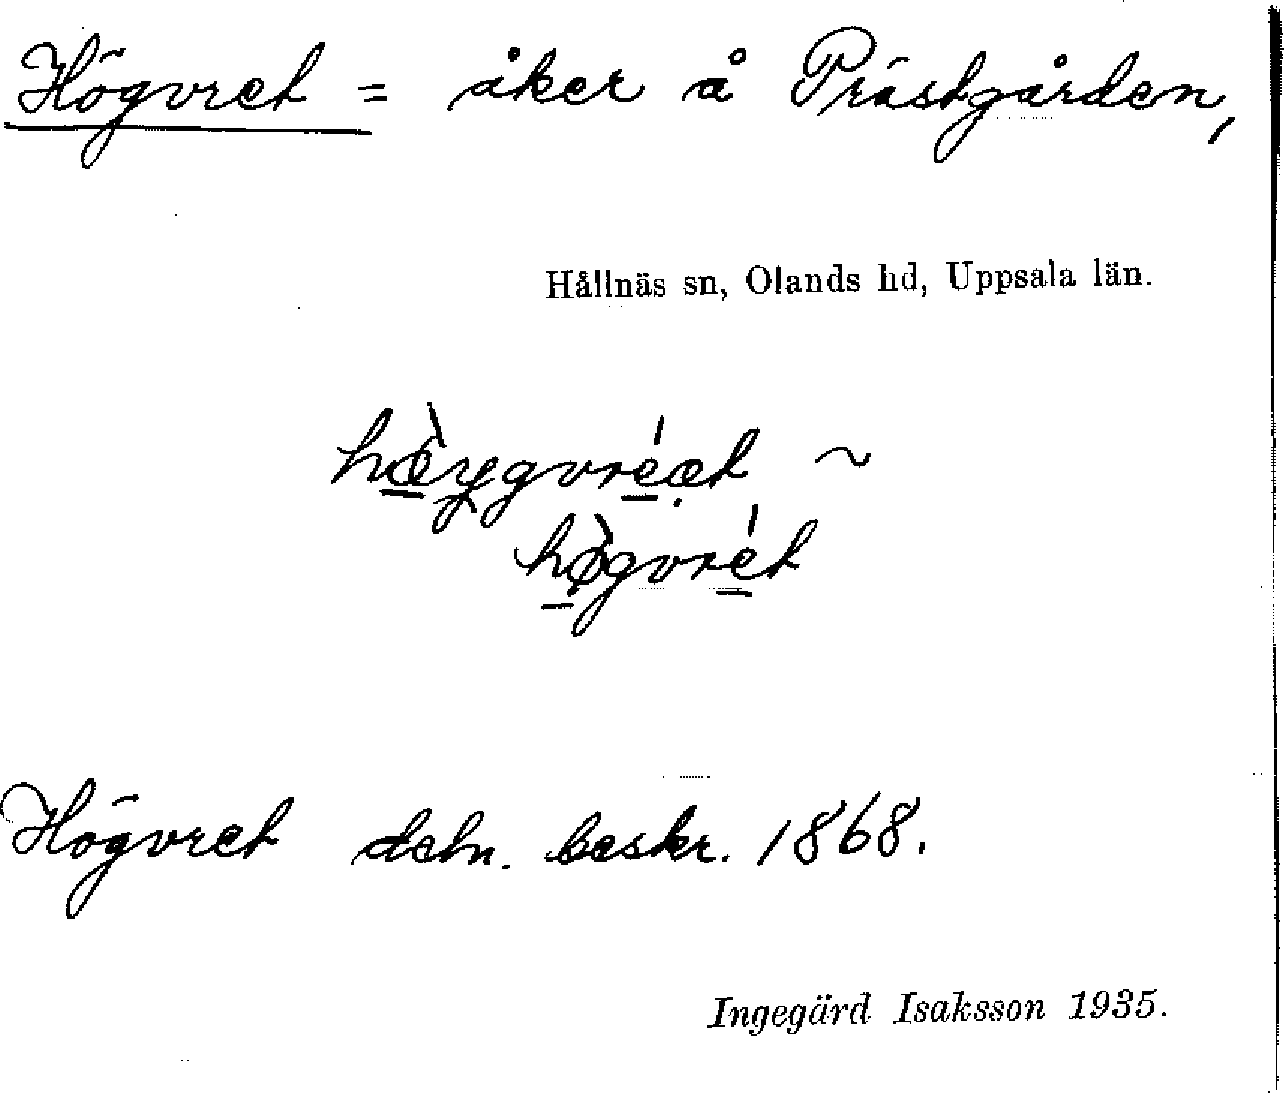 Högvret = åker å Prästgården,
Hållnäs sn, Olands hd, Uppsala län.
hœ̀ygvréæt ~
hø̀gvrét
Högvret detn. beskr. 1868.
Ingegärd Isaksson 1935.